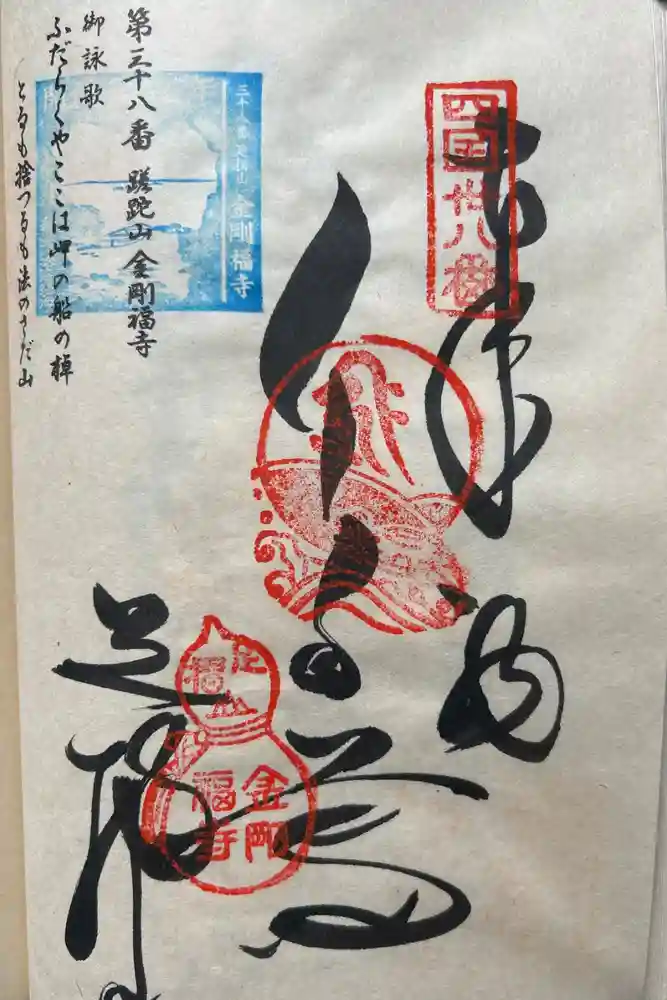 四国卅八番
奉納
足摺
足摺山
金剛福寺
三十八番 足摺山 金剛福寺
第三十八番 蹉跎山 金剛福寺
御詠歌
ふだらくやここは岬の船の棹
とるも捨つるも法のさだ山